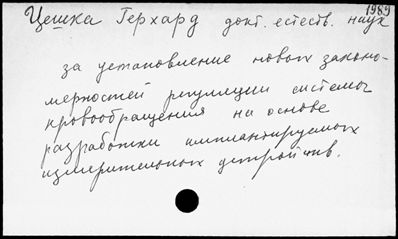 1989
Цешка Герхард докт. естеств. наук
за установление новых законо-
мерностей регуляции системы
кровообращения на основе
разработки имплантируемых
измерительных устройств.